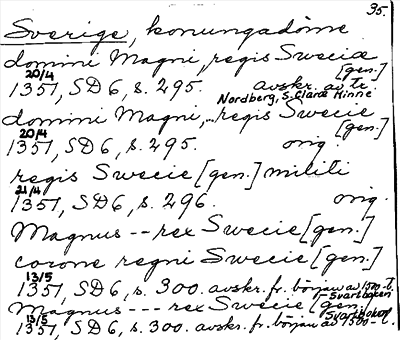 35.
Sverige, konungadöme
domini Magni, regis Sweciæ
[gen.]
20/4
1351, SD 6, s. 295. avskr. av tr.
Nordberg, S. Claræ Minne
domini Magni, -- regis Swecie
[gen.]
20/4
1351, SD 6, s. 295. orig.
regis Swecie [gen.] militi
21/4
1351, SD 6, s. 296. orig.
Magnus -- rex Swecie [gen.]
corone regni Swecie [gen.]
13/5
1351, SD 6, s. 300. avskr. fr. början av 1500-t.
- Svartboken
Magnus --- rex Swecie [gen.]
13/5
Svartboken
1351, SD 6, s. 300. avskr. fr. början av 1500-t.